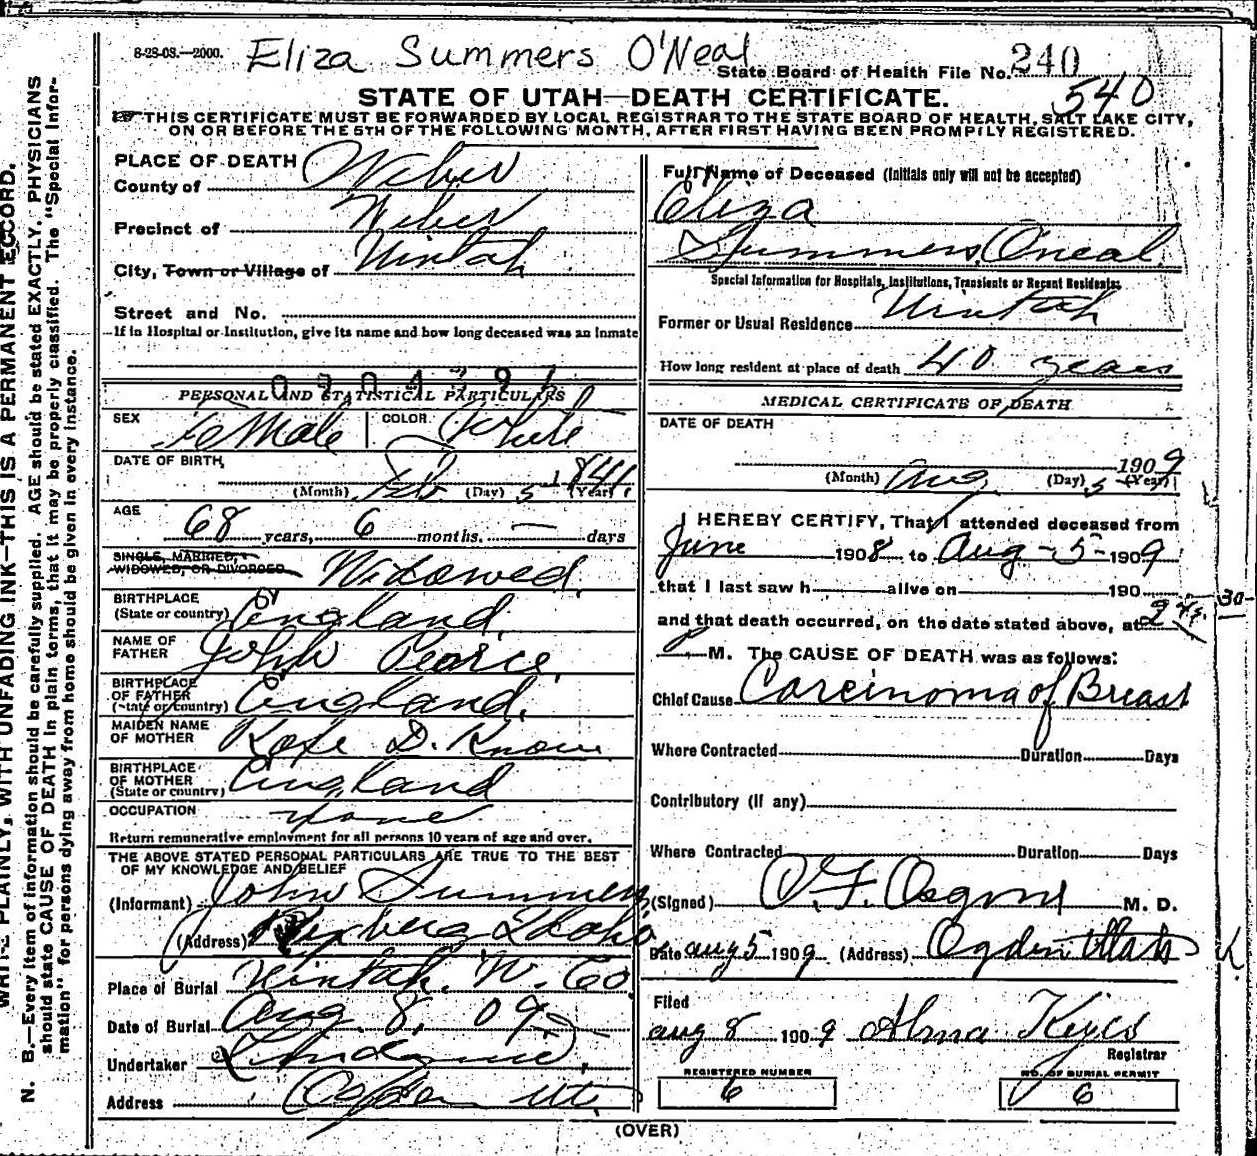 8-28-08.—2000. Eliza Summers O'Neal
State Board of Health File No. 240
540
STATE OF UTAH—DEATH CERTIFICATE.
THIS CERTIFICATE MUST BE FORWARDED BY LOCAL REGISTRAR TO THE STATE BOARD OF HEALTH, SALT LAKE CITY,
ON OR BEFORE THE 5TH OF THE FOLLOWING MONTH, AFTER FIRST HAVING BEEN PROMPTLY REGISTERED.
PLACE OF DEATH
County of Weber
Precinct of Weber
City, Town or Village of Uintah
Street and No.
If in Hospital or Institution, give its name and how long deceased was an Inmate
PERSONAL AND STATISTICAL PARTICULARS
SEX Female COLOR White
DATE OF BIRTH,
(Month) Feb (Day) 5 1841 (Year)
AGE
68 years, 6 months, — days
SINGLE, MARRIED,
WIDOWED, OR DIVORCED Widowed
BIRTHPLACE
(State or country) England
NAME OF
FATHER John Pearce
BIRTHPLACE
OF FATHER
(State or country) England
MAIDEN NAME
OF MOTHER D. Know
BIRTHPLACE
OF MOTHER
(State or country) England
OCCUPATION None
Return remunerative employment for all persons 10 years of age and over.
THE ABOVE STATED PERSONAL PARTICULARS ARE TRUE TO THE BEST
OF MY KNOWLEDGE AND BELIEF
(Informant) John Summers
(Address) Rexberg Idaho
Place of Burial Uintah. W. Co.
Date of Burial Aug. 8. 09
Undertaker
Address Ogden Ut.
Full Name of Deceased (Initials only will not be accepted)
Eliza
Summers Oneal
Special Information for Hospitals, Institutions, Transients or Recent Residents:
Former or Usual Residence Uintah
How long resident at place of death 40 years
MEDICAL CERTIFICATE OF DEATH
DATE OF DEATH
1909
(Month) Aug. (Day) 5 (Year)
I HEREBY CERTIFY, That I attended deceased from
June 1908 to Aug-5-1909
that I last saw h alive on 190
and that death occurred, on the date stated above, at 2
30
P M. The CAUSE OF DEATH was as follows:
Chief Cause Carcinoma of Breast
Where Contracted Duration Days
Contributory (If any)
Where Contracted Duration Days
(Signed) O. F. Osgood M. D.
Date Aug 5 1909 (Address) Ogden Utah
Filed
Aug 8 1909 Alma Keyes
Registrar
REGISTERED NUMBER
6
NO. OF BURIAL PERMIT
6
(OVER)
WRITE PLAINLY, WITH UNFADING INK—THIS IS A PERMANENT RECORD.
N. B.—Every item of information should be carefully supplied. AGE should be stated EXACTLY. PHYSICIANS
should state CAUSE OF DEATH in plain terms, that it may be properly classified. The "Special Infor-
mation" for persons dying away from home should be given in every instance.